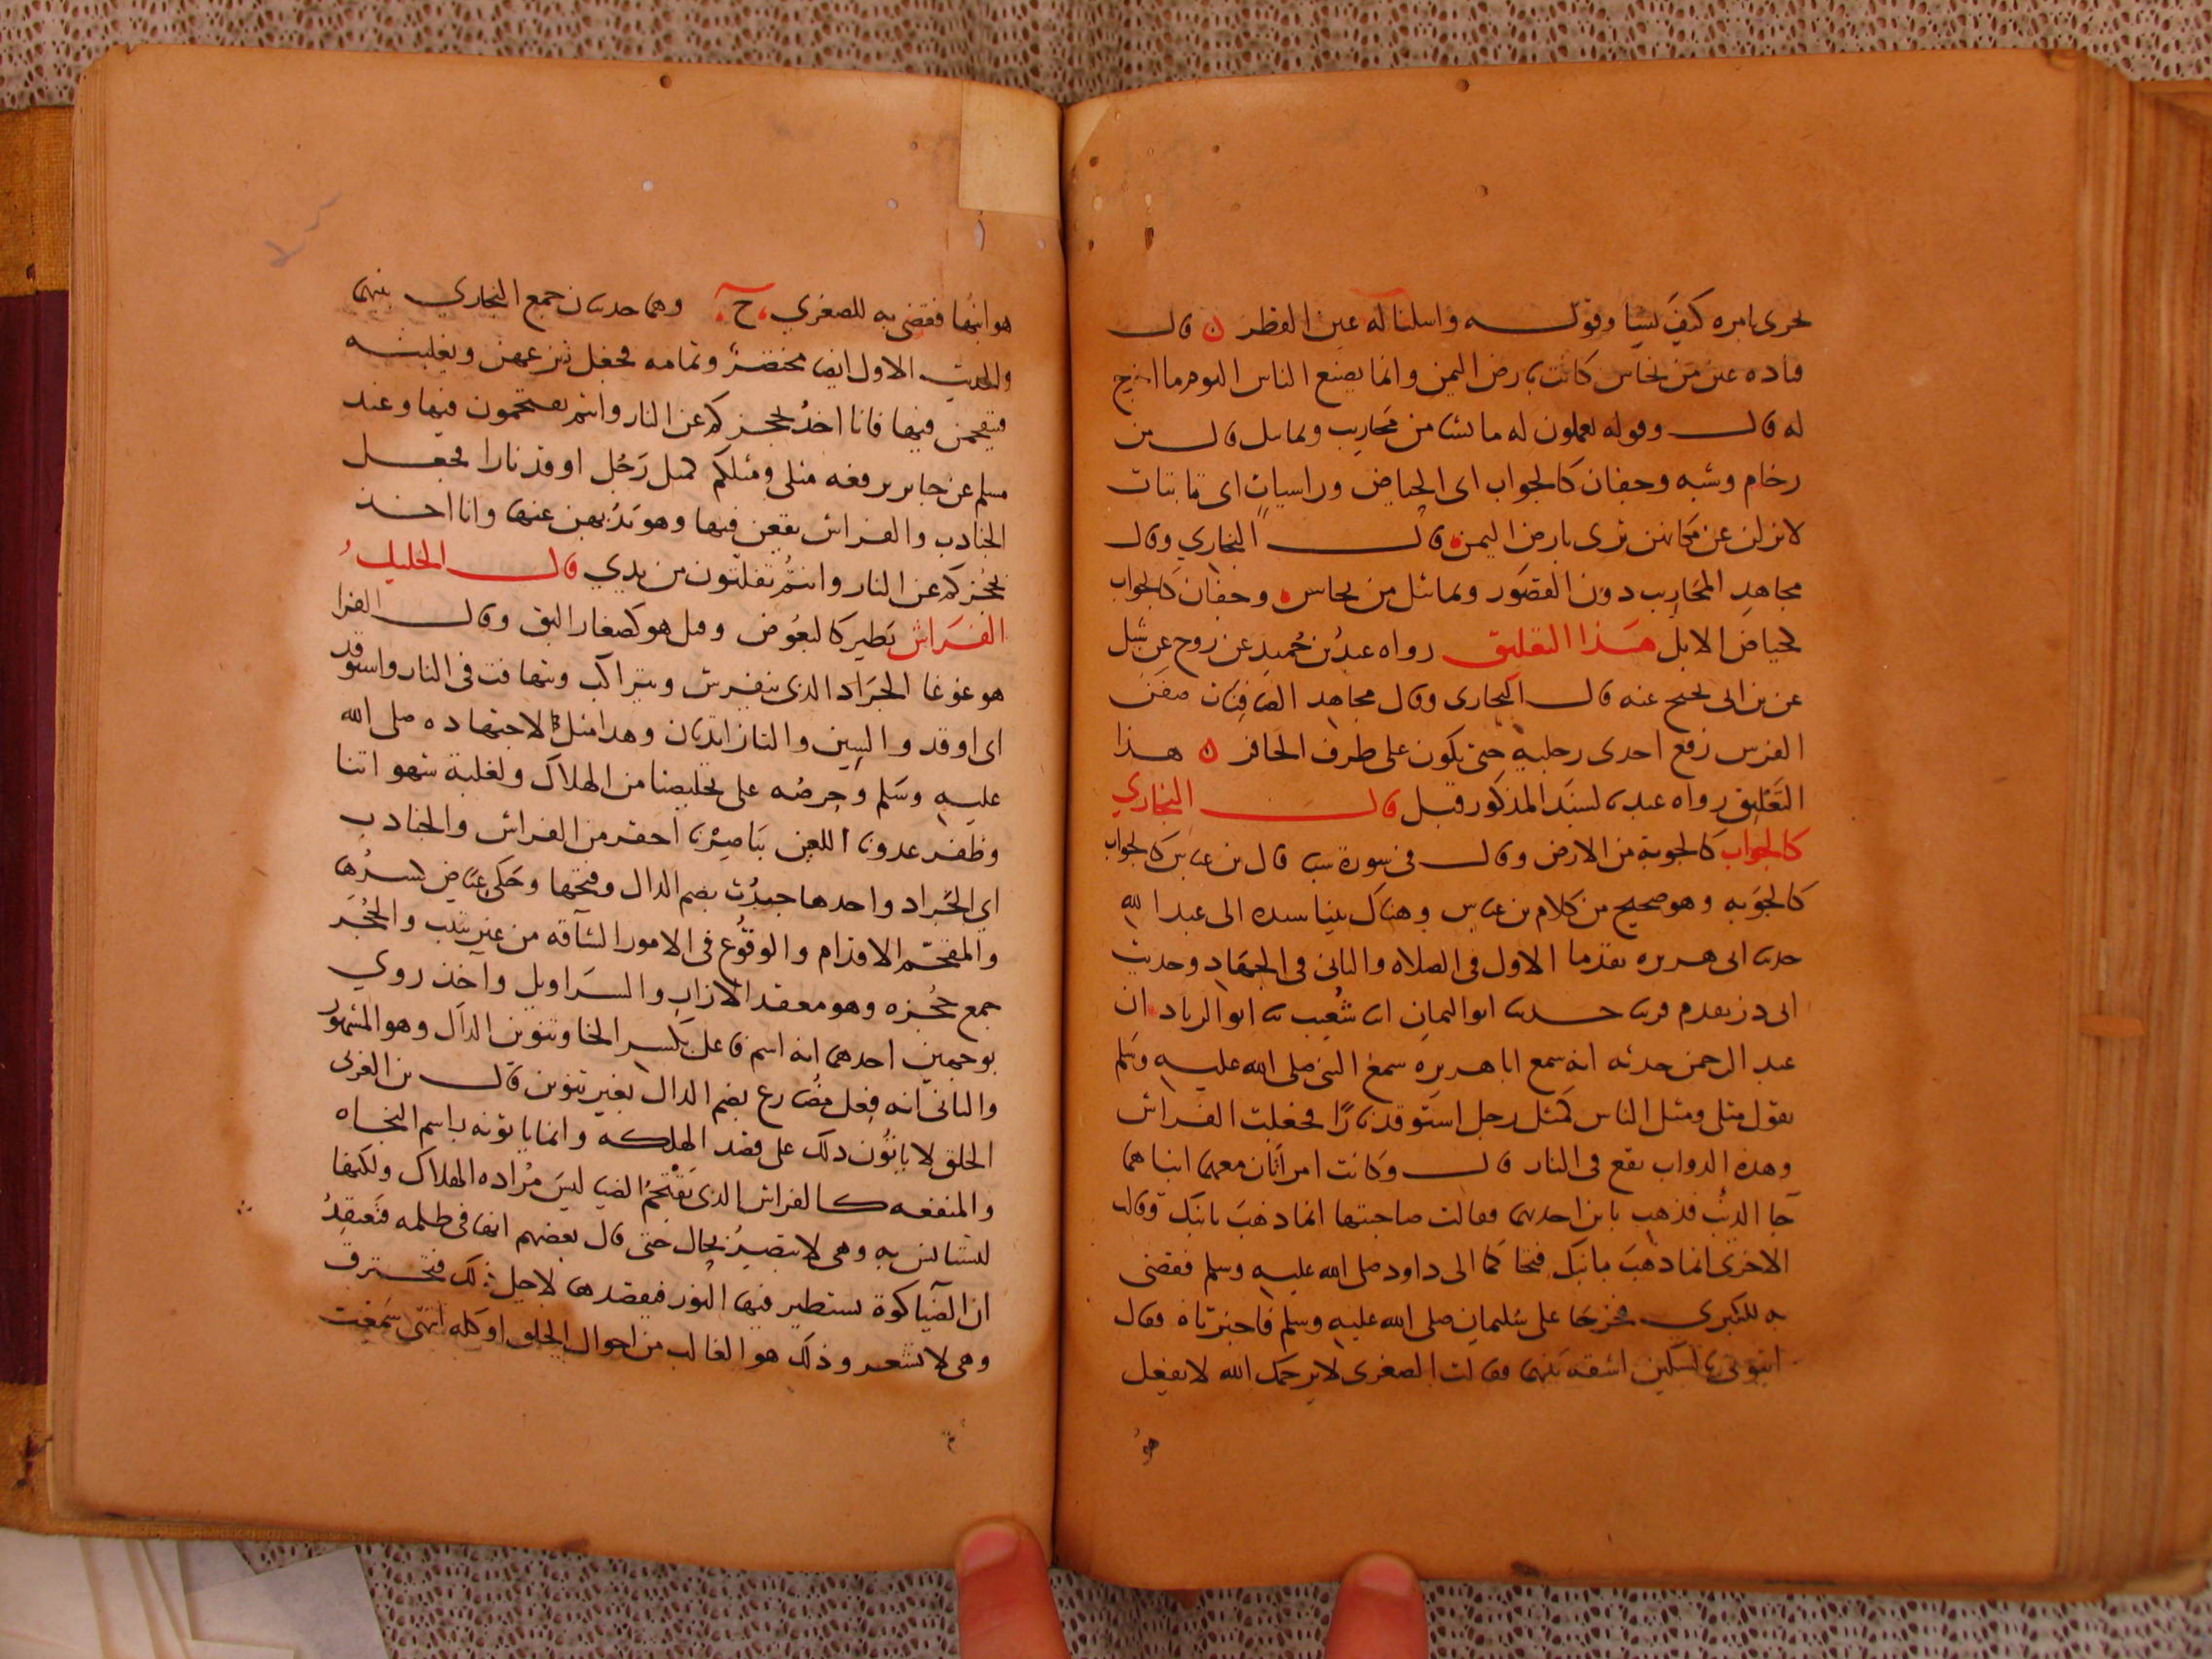 تجرى بامره كيف يشا وقوله واسلنا له عين القطر ن قال
قتاده عين من نحاس كانت بارض اليمن وانما يصنع الناس اليوم مما اخرج
له قال وقوله يعملون له ما يشا من محاريب وتماثيل قال من
رخام وشبه وجفان كالجواب اى الحياض وراسيات اى ثابتات
لا يزلن عن مكانهن ترى بارض اليمن قال البخاري وقال
مجاهد المحاريب دون القصور وتماثيل من نحاس وجفان كالجواب
لحياض الابل هذا التعليق رواه عبد بن حميد عن روح عن شبل
عن بن ابى نجيح عنه قال البخارى وقال مجاهد الصافنات صفن
الفرس رفع احدى رجليه حتى يكون على طرف الحافر ن هذا
التعليق رواه عبد بالسند المذكور قبل قال البخاري
كالجواب كالجوبة من الارض وقال فى سورة سبا قال بن عباس كالجواب
كالجوبه وهو صحيح من كلام بن عباس وهناك بينا سنده الى عبد الله
حديث ابى هريره تقدما الاول فى الصلاه والثانى فى الجهاد وحديث
ابى ذر تقدم حدثنا ابو اليمان انا شعيب ثنا ابو الزناد ان
عبد الرحمن حدثه انه سمع ابا هريره سمع النبى صلى الله عليه وسلم
يقول مثلى ومثل الناس كمثل رجل استوقد نارا فجعلت الفراش
وهذه الدواب تقع فى النار قال وكانت امراتان معهما ابناهما
جا الذئب فذهب بابن احديهما فقالت صاحبتها انما ذهب بابنك وقالت
الاخرى انما ذهب بابنك فتحاكما الى داود صلى الله عليه وسلم فقضى
به للكبرى فخرجتا على سليمان صلى الله عليه وسلم فاخبرتاه فقال
ايتونى بالسكين اشقه بينهما فقالت الصغرى لا يرحمك الله لا تفعل
هو
هو ابنها فقضى به للصغري ح وهما حديثان جمع البخاري بينهما
والحديث الاول ايضا مختصر وتمامه فجعل ينزعهن ويغلبنه
فيقحمن فيها فانا اخذ بحجزكم عن النار وانتم تقتحمون فيها وعند
مسلم عن جابر يرفعه مثلى ومثلكم كمثل رجل اوقد نارا فجعل
الجنادب والفراش يقعن فيها وهو يذبهن عنها وانا اخذ
بحجزكم عن النار وانتم تفلتون من يدي قال الخليل
الفراش يطير كالبعوض وقيل هو كصغار البق وقال الفرا
هو غوغا الجراد الذى ينفرش ويتراكب ويتهافت فى النار واستوقد
اى اوقد والسين والتا زايدتان وهذا مثل لاجتهاده صلى الله
عليه وسلم وحرصه على تخليصنا من الهلاك ولغلبة شهواتنا
وظفر عدونا اللعين بنا صرنا احقر من الفراش والجنادب
اي الجراد واحدها جندب بضم الدال وفتحها وحكى عياض كسرها
والتقحم الاقدام والوقوع فى الامور الشاقه من غير تثبت والحجز
جمع حجزه وهو معقد الازار والسراويل واخذ روي
بوجهين احدهما انه اسم فاعل بكسر الخا وتنوين الدال وهو المشهور
والثانى انه فعل مضارع بضم الدال بغير تنوين قال بن العربى
الخلق لا ياتون ذلك على قصد الهلكه وانما ياتونه باسم النجاه
والمنفعه كالفراش الذى يقتحم الضيا ليس مراده الهلاك ولكنها
تستانس به وهى لا تصبر بحال حتى قال بعضهم انها فى ظلمه فتعتقد
ان الضيا كوة يستطير فيها النور فيقصدها لاجل ذلك فتحترق
وهى لا تشعر وذلك هو الغالب من احوال الخلق او كله انتهى سميت